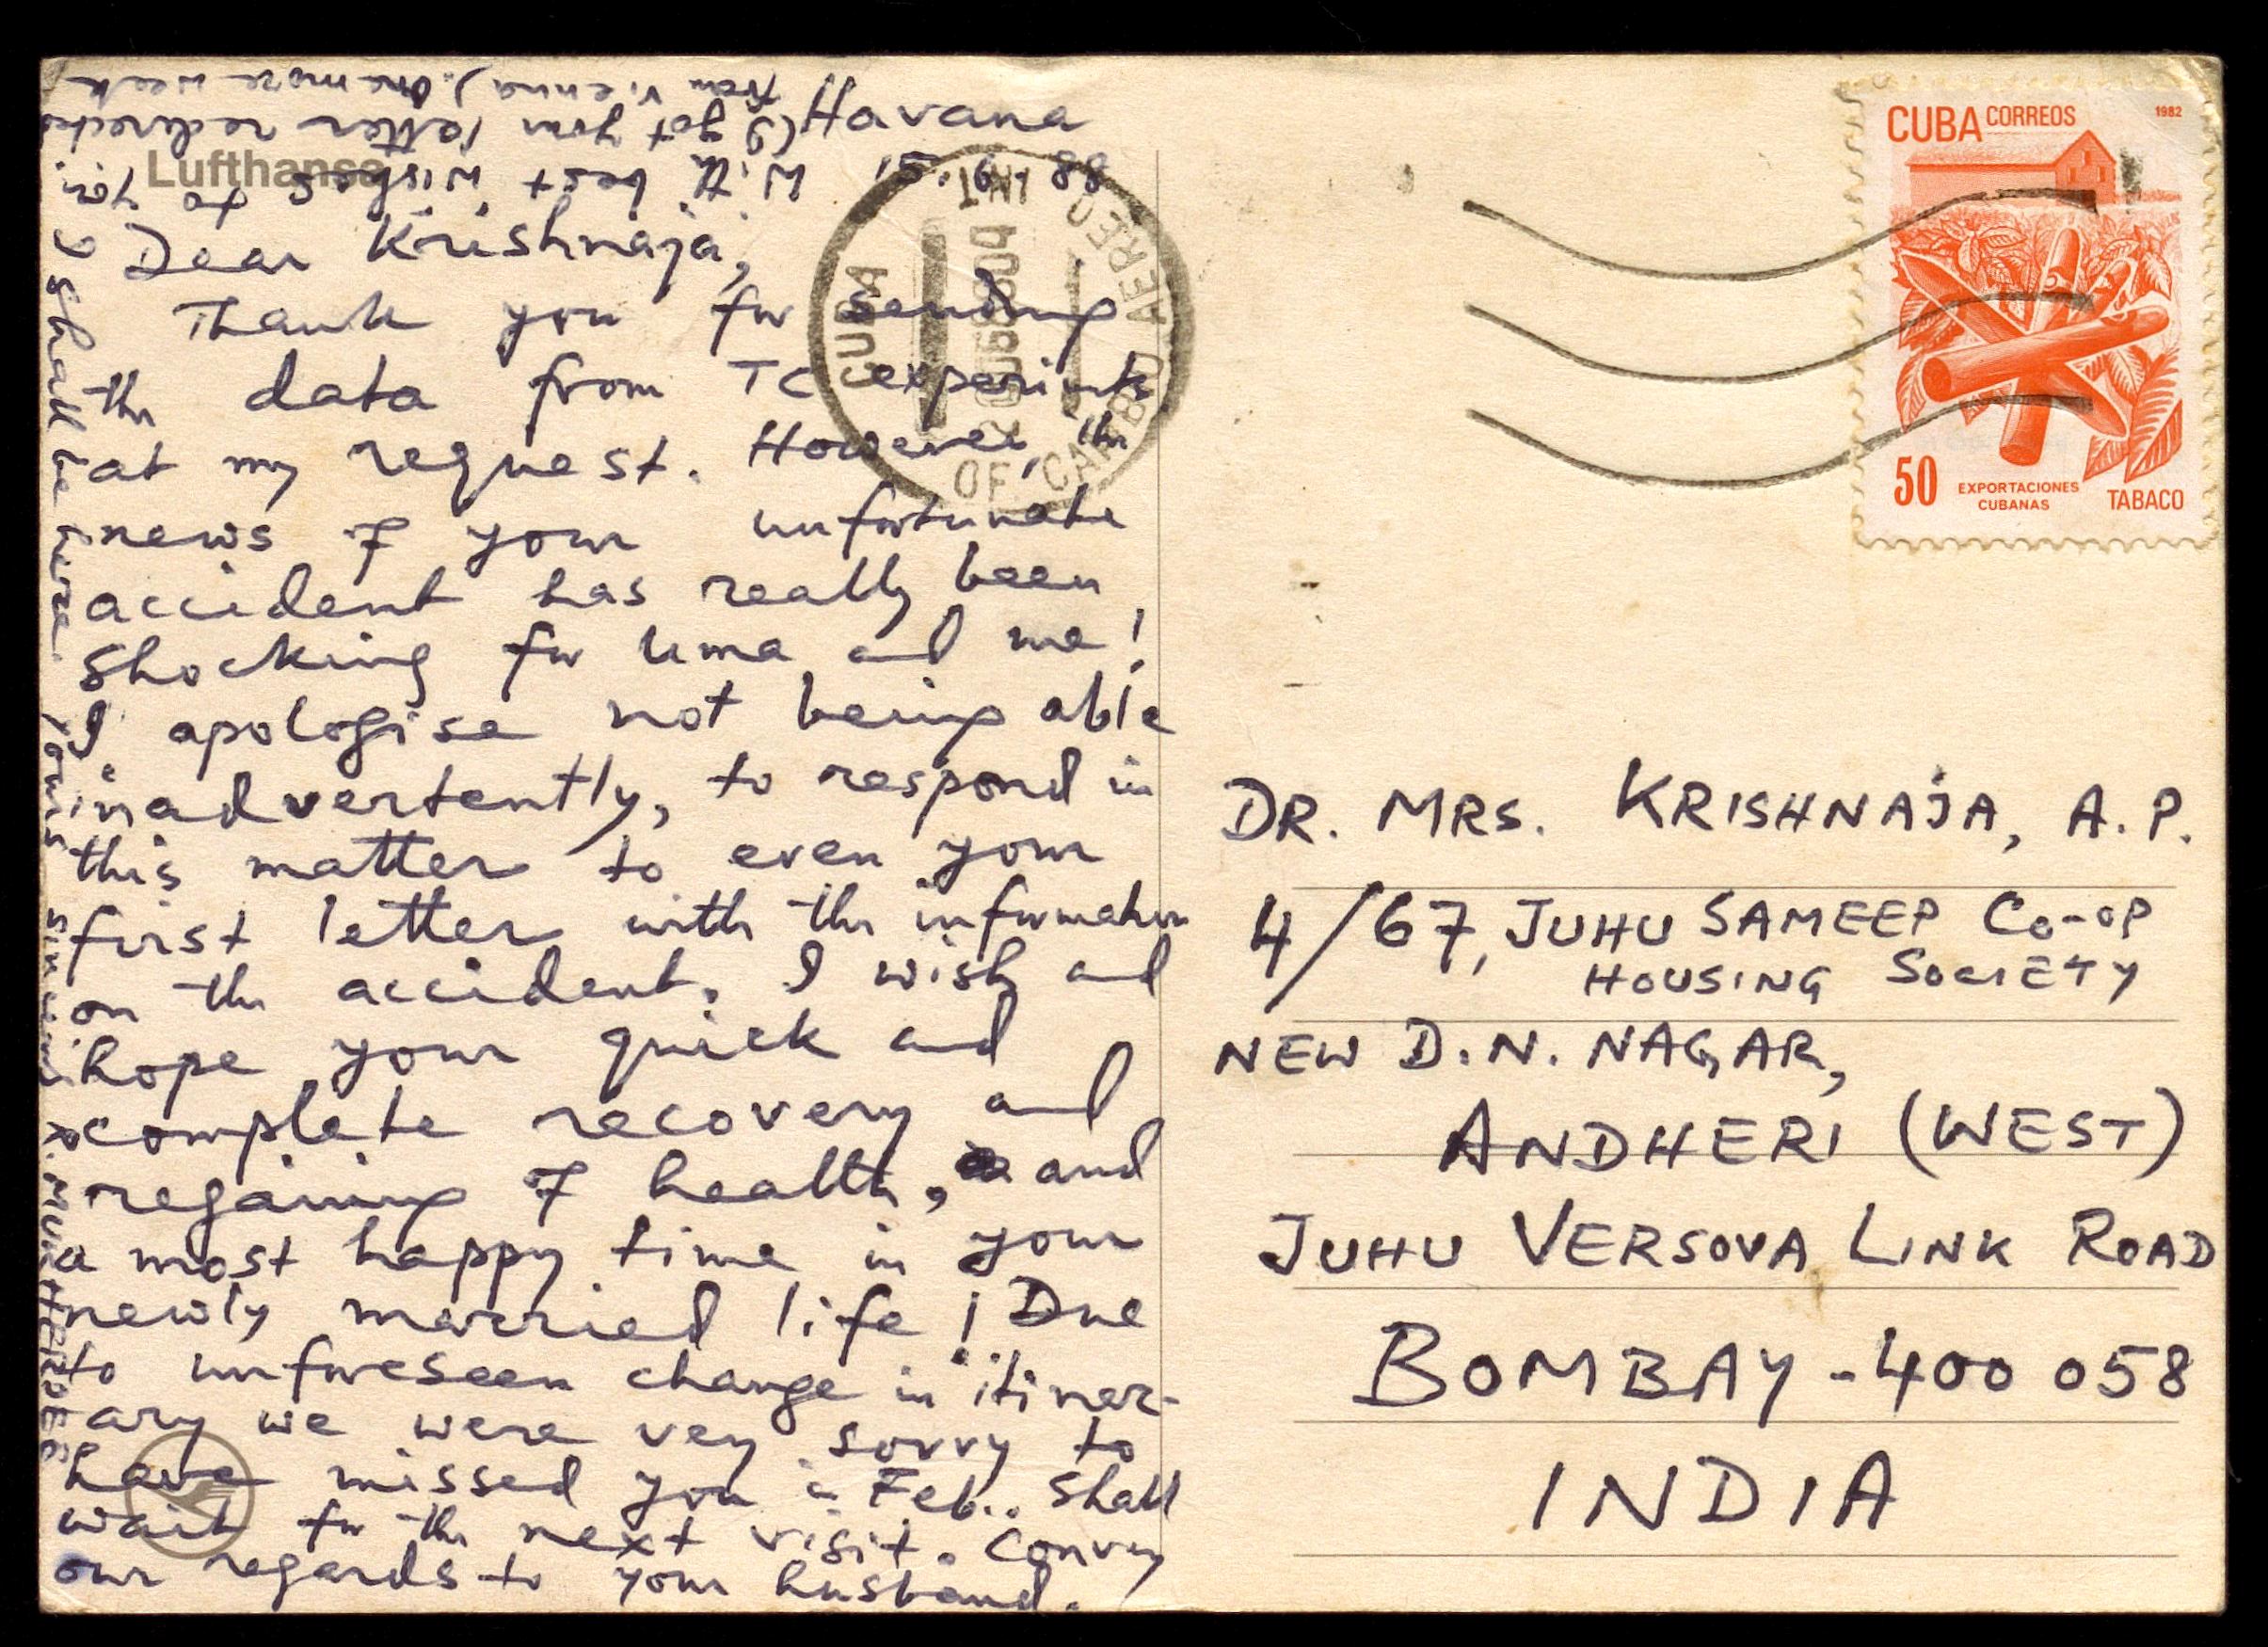 Havana
Lufthansa
Dear Krishnaja,
Thank you for sending
the data from TC experiments
at my request. However, the
news of your unfortunate
accident has really been
shocking for Uma and me!
I apologise not being able
inadvertently, to respond in
this matter to even your
first letter with the information
on the accident. I wish and
hope your quick and
complete recovery and
regaining of health, and
a most happy time in your
newly married life! Due
to unforeseen change in itiner-
ary we were very sorry to
have missed you in Feb.. Shall
wait for the next visit. Convey
our regards to your husband.
With best wishes to you.
(I got your letter redirected
from Vienna). One more week
I shall be here.
Yours sincerely
CUBA
CORREO AEREO INT
OF. CAMBIO
CUBA CORREOS 1982
50 EXPORTACIONES
CUBANAS
TABACO
DR. MRS. KRISHNAJA, A.P.
4/67, JUHU SAMEEP CO-OP
HOUSING SOCIETY
NEW D.N. NAGAR,
ANDHERI (WEST)
JUHU VERSOVA LINK ROAD
BOMBAY - 400 058
INDIA